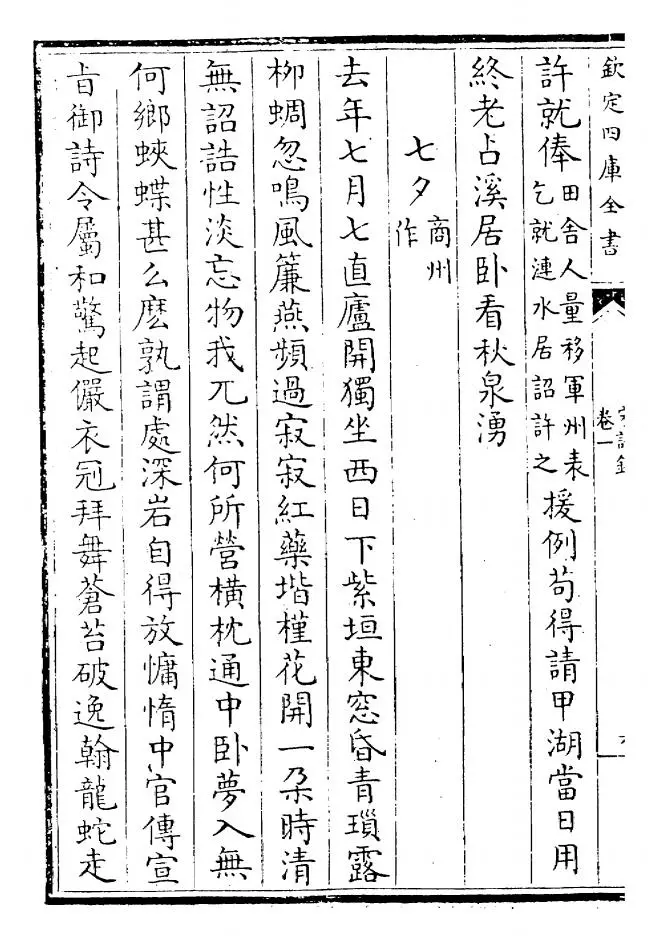 欽定四庫全書
卷一
許就俸田舍人量移軍州表乞就漣水居詔許之援例苟得請甲湖當日用
終老占溪居卧看秋泉湧
七夕商州作
去年七月七直廬開獨坐西日下紫垣東窓昏青瑣露
柳蜩忽鳴風簾燕頻過寂寂紅藥堦槿花開一朶時清
無詔誥性淡忘物我兀然何所營橫枕通中卧夢入無
何鄉蛺蝶甚么麽孰謂處深岩自得放慵惰中官傳宣
㫖御詩令屬和驚起儼衣冠拜舞蒼苔破逸翰龍蛇走